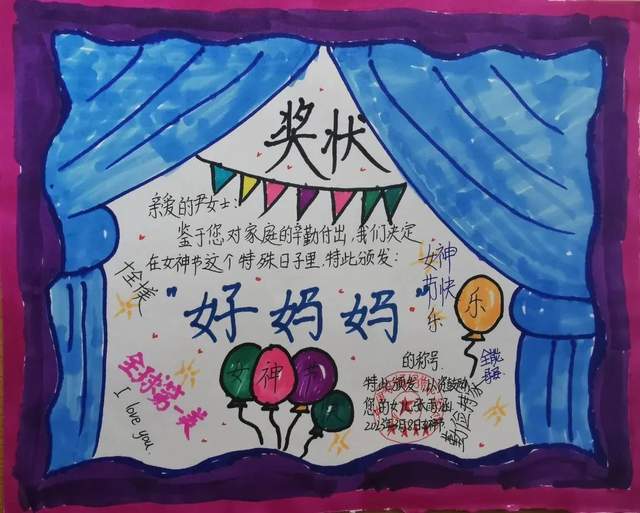 奖状
亲爱的尹女士:
鉴于您对家庭的辛勤付出,我们决定
在女神节这个特殊日子里,特此颁发:
"好妈妈"
的称号.
特此颁发,以资鼓励
您的女儿
十全十美
全球第一美
I love you.
女神节
女神
节快
乐
乐
勤俭持家